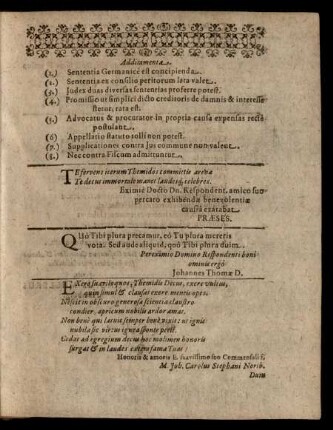 Additamenta.
(1.) Sententia Germanicè est concipienda.
(2.) Sententia ex consilio peritorum lata valet.
(3.) Judex duas diversas sententias proferre potest.
(4.) Promissio ut simplici dicto creditoris de damnis & interesse
stetur, rata est.
(5.) Advocatus & procurator in propria causa expensas rectè
postulant.
(6) Appellatio statuto tolli non potest.
(7.) Supplicationes contra Jus commune non valent.
(8.) Nec contra Fiscum admittuntur.
TE fervens iterum Themidos committis
Te decus immortale manet laudesq; celebres.
Eximiè Docto Dn. Respondenti, amico suo
percaro exhibendæ benevolentiæ
PRÆSES.
QUò Tibi plura precamur, eò Tu plura mereris
vota. Sed audeo aliquid, quò Tibi plura
Pereximio Domino Respondenti boni
ominis ergò
Johannes Thomæ D.
EXere, Themidis Decus, exere vultus,
quin simul & clausas exere mentis opes.
Nescit in obscuro generosa scientia claustro
condier, apricum nobilis ardor amat.
Non benè qui latuit semper
nubila sic virtus ignea sponte petit.
Cedat ad egregium decus hoc molimen honoris
surgat & in laudes Tuas!
Honoris & amoris E. suavissimo suo Commensali f.
M. Joh. Carolus Stephani Norib.
Dum